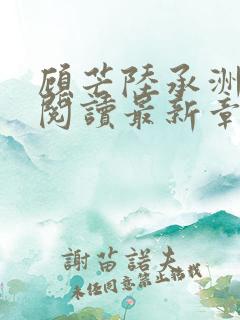 顧芒陸承洲
閱讀最新章
謝苗諾夫
未經同意禁止轉載